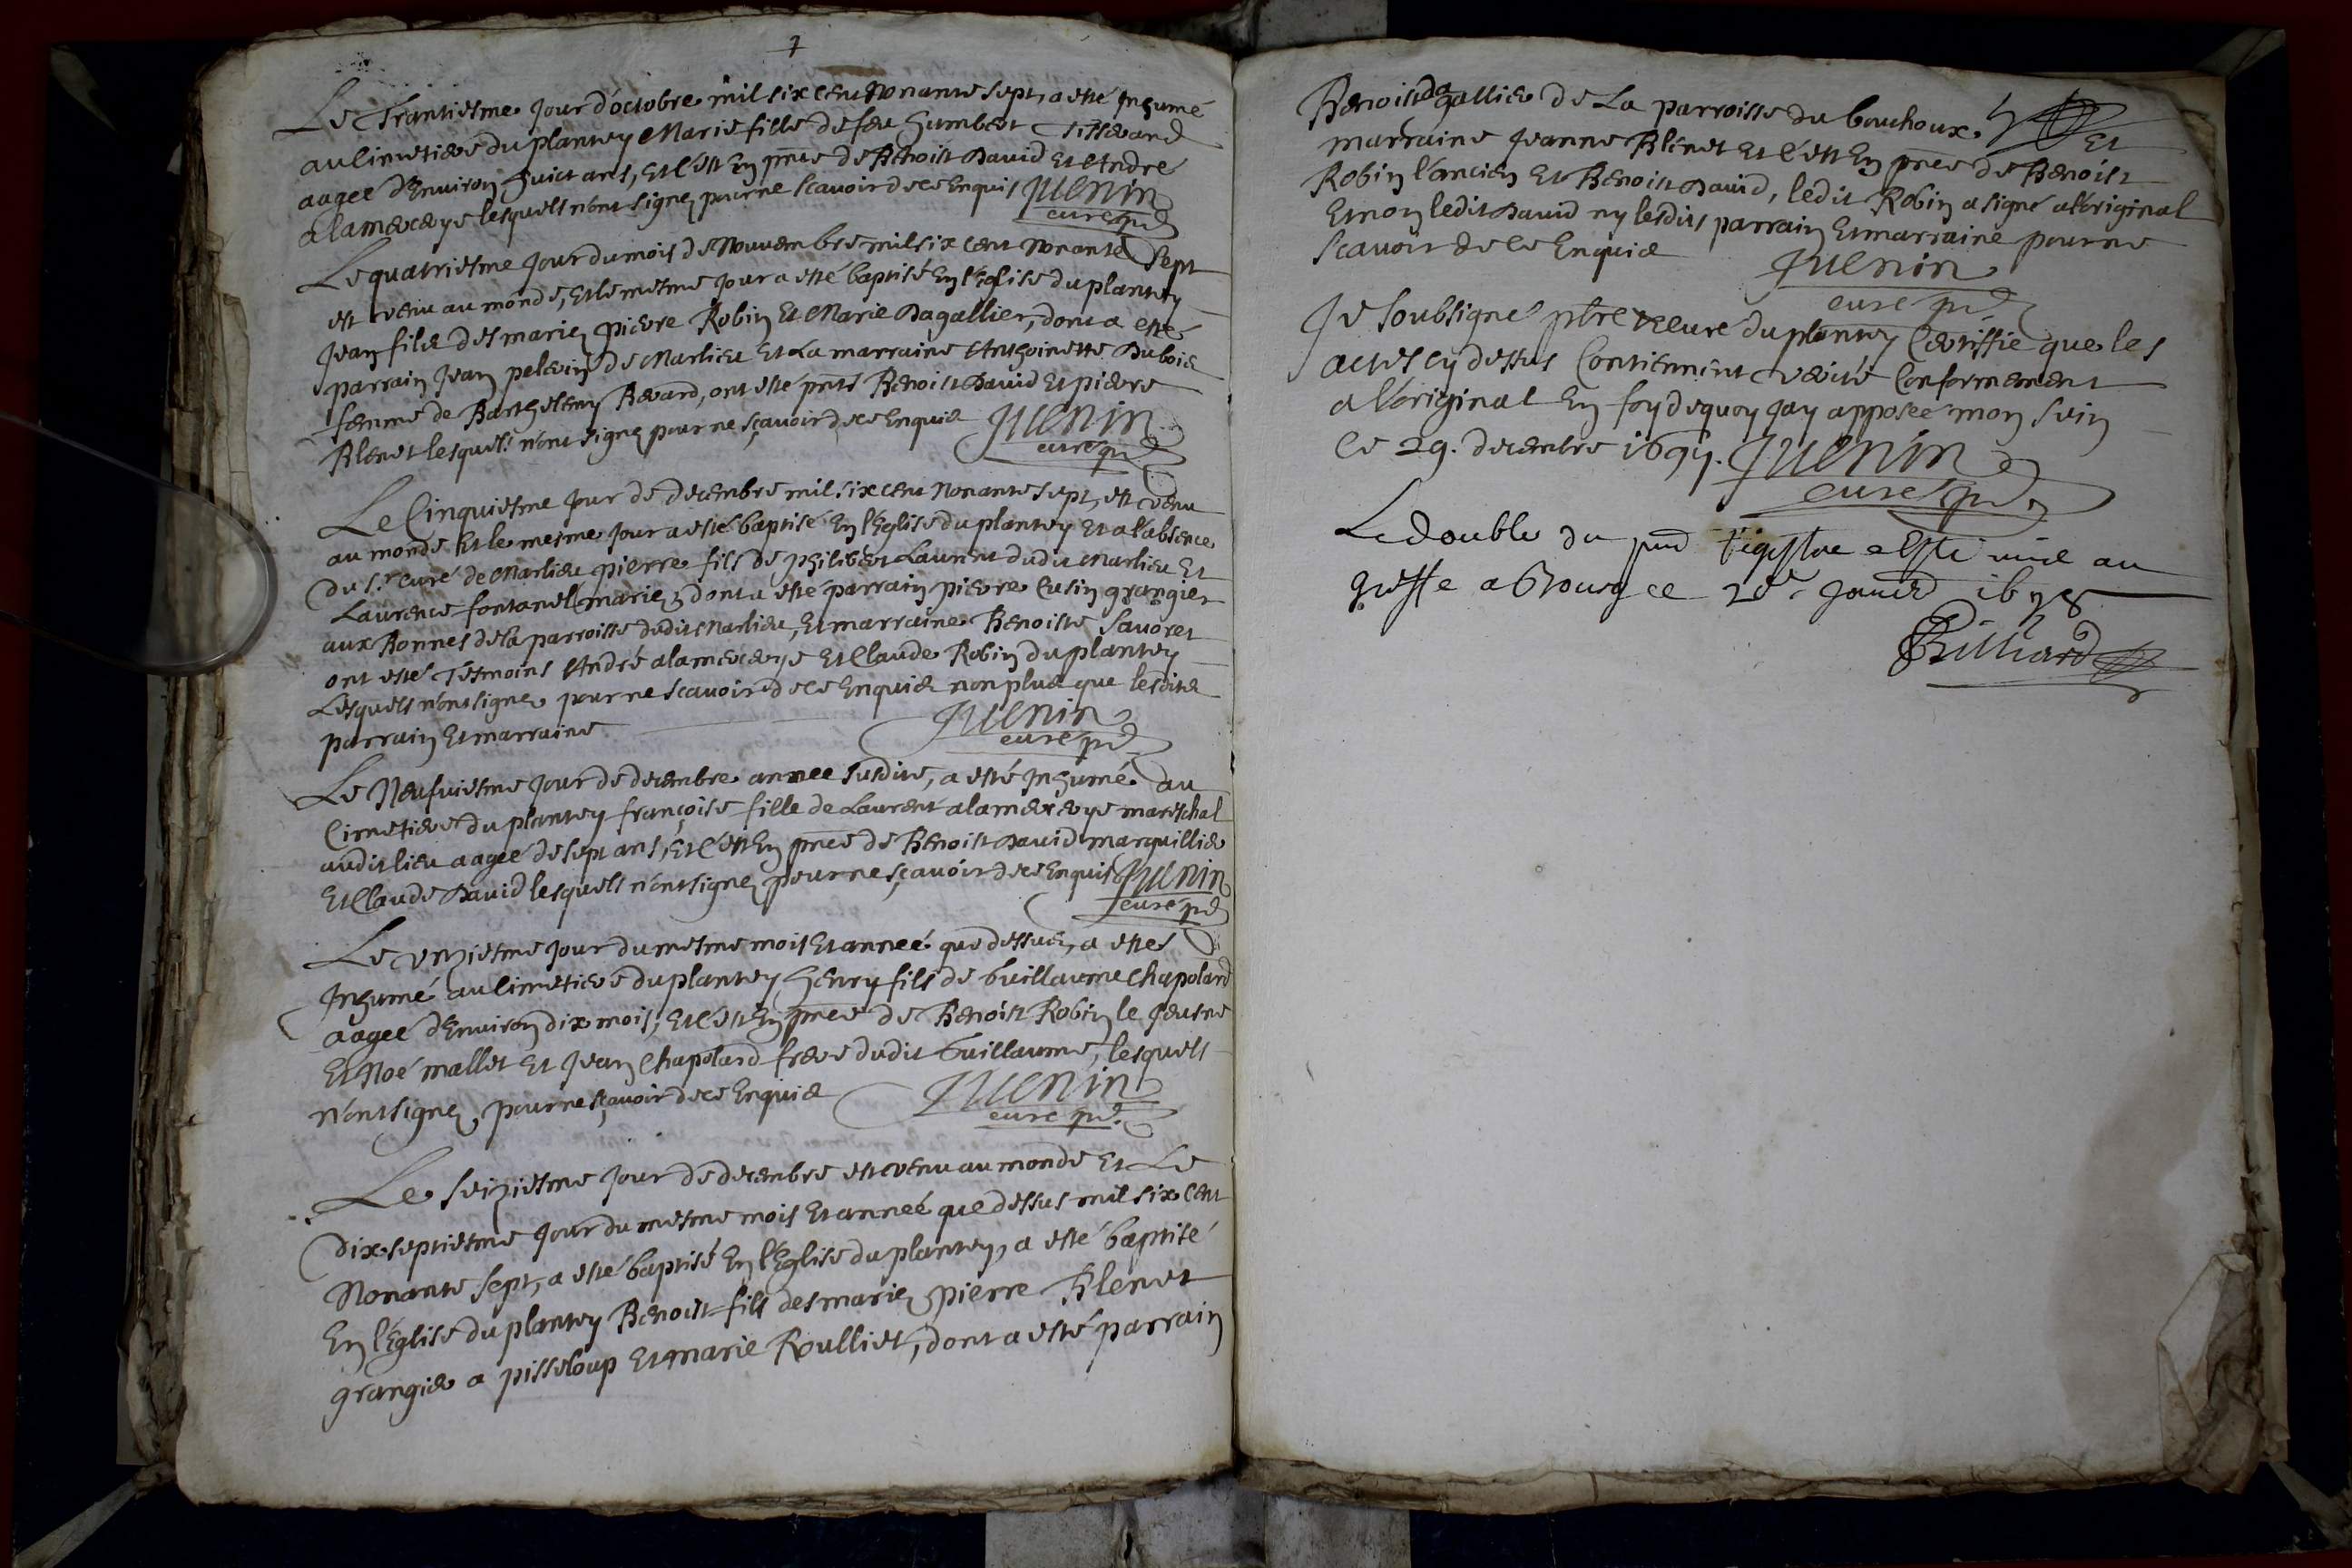 7
Le Trantiesme Jour d'octobre mil six cent Nonante sept, a esté Inhumé
au Cimetiere du plantey Marie fille de feu humbert Tisserand
aagee d'Environ huict ans, Et c'est En pnce de Benoist David Et André
alamercerye lesquels n'ont signez pour ne scavoir de ce Enquis Juenin
curé pnt
Le quatriesme Jour du mois de Nouvembre mil six cent Nonante Sept
est venu au monde, Et le mesme Jour a esté baptisé En l'Eglise du plantey
Jean fils des mariez pierre Robin Et Marie Dagallier, dont a esté
parrain Jean peleuin de Marlieu Et La marraine Anthoinette Dubois
femme de Barthelemy Berard, ont esté pnts Benoist David Et pierre
Blenet lesquels n'ont signez pour ne sçavoir de ce Enquis Juenin
curé pnt
Le Cinquiesme Jour de decembre mil six cent Nonante sept, est venu
au monde Et le mesme Jour a esté baptisé En l'Eglise du plantey Et a l'absence
Du Sr curé de Marlieu pierre fils de philibert Laurent dudit Marlieu Et
Laurence fontanel mariez, dont a esté parrain pierre Cusin grangier
aux Bonnes de la parroisse dudit Marlieu, Et marraine Benoiste Sauoret
ont esté Tesmoins André alamercerye Et Claude Robin du plantey
Lesquels n'ont signez pour ne scavoir de ce Enquis non plus que lesdits
parrain Et marraine Juenin
curé pnt
Le Neufuiesme Jour de decembre annee susdite, a esté Inhumé au
Cimetiere du plantey françoise fille de Laurent alamercerye mareschal
audit lieu aagee de sept ans, Et c'est En pnce de Benoist David marquillier
Et Claude David lesquels n'ont signez pour ne sçavoir de ce Enquis Juenin
curé pnt
Le unziesme Jour du mesme mois Et anneé que dessus, a esté
Inhumé au Cimetiere du plantey, henry fils de Guillaume Chapoland
aageé d'Environ dix mois, Et c'est En pnce de Benoist Robin le Jeusne
Et Noé mallet Et Jean Chapoland frere dudit Guillaume, lesquels
N'ont signez, pour ne sçavoir de ce Enquis Juenin
curé pnt
Le seiziesme Jour de decembre est venu au monde Et Le
Dix septiesme Jour du mesme mois Et anneé que dessus mil six cent
Nonante sept, a esté baptisé En l'Eglise du plantey, a esté baptisé
En l'Eglise du plantey Benoist fils des mariez pierre Blenet
grangier a pisseloup Et marie Roulliet, dont a esté parrain
Benoist dagallier de La parroisse du bouchoux Et
marraine Jeanne Blenet Et c'est En pnce de Benoist
Robin l'ancien Et Benoist David, ledit Robin a signé a l'original
Et non ledit David ny lesdits parrain Et marraine pour ne
scavoir de ce Enquis Juenin
curé pnt
Je Soubsigné pbre Et curé du plantey Certiffie que les
actes cy dessus Contiennent verité Conformement
a l'original En foy dequoy Jay apposeé mon sein
le 29. decembre 1697. Juenin
curé pnt
Le double du pnt Registre a Esté mis au
greffe a Bourg ce Janvier 1698
Billiard